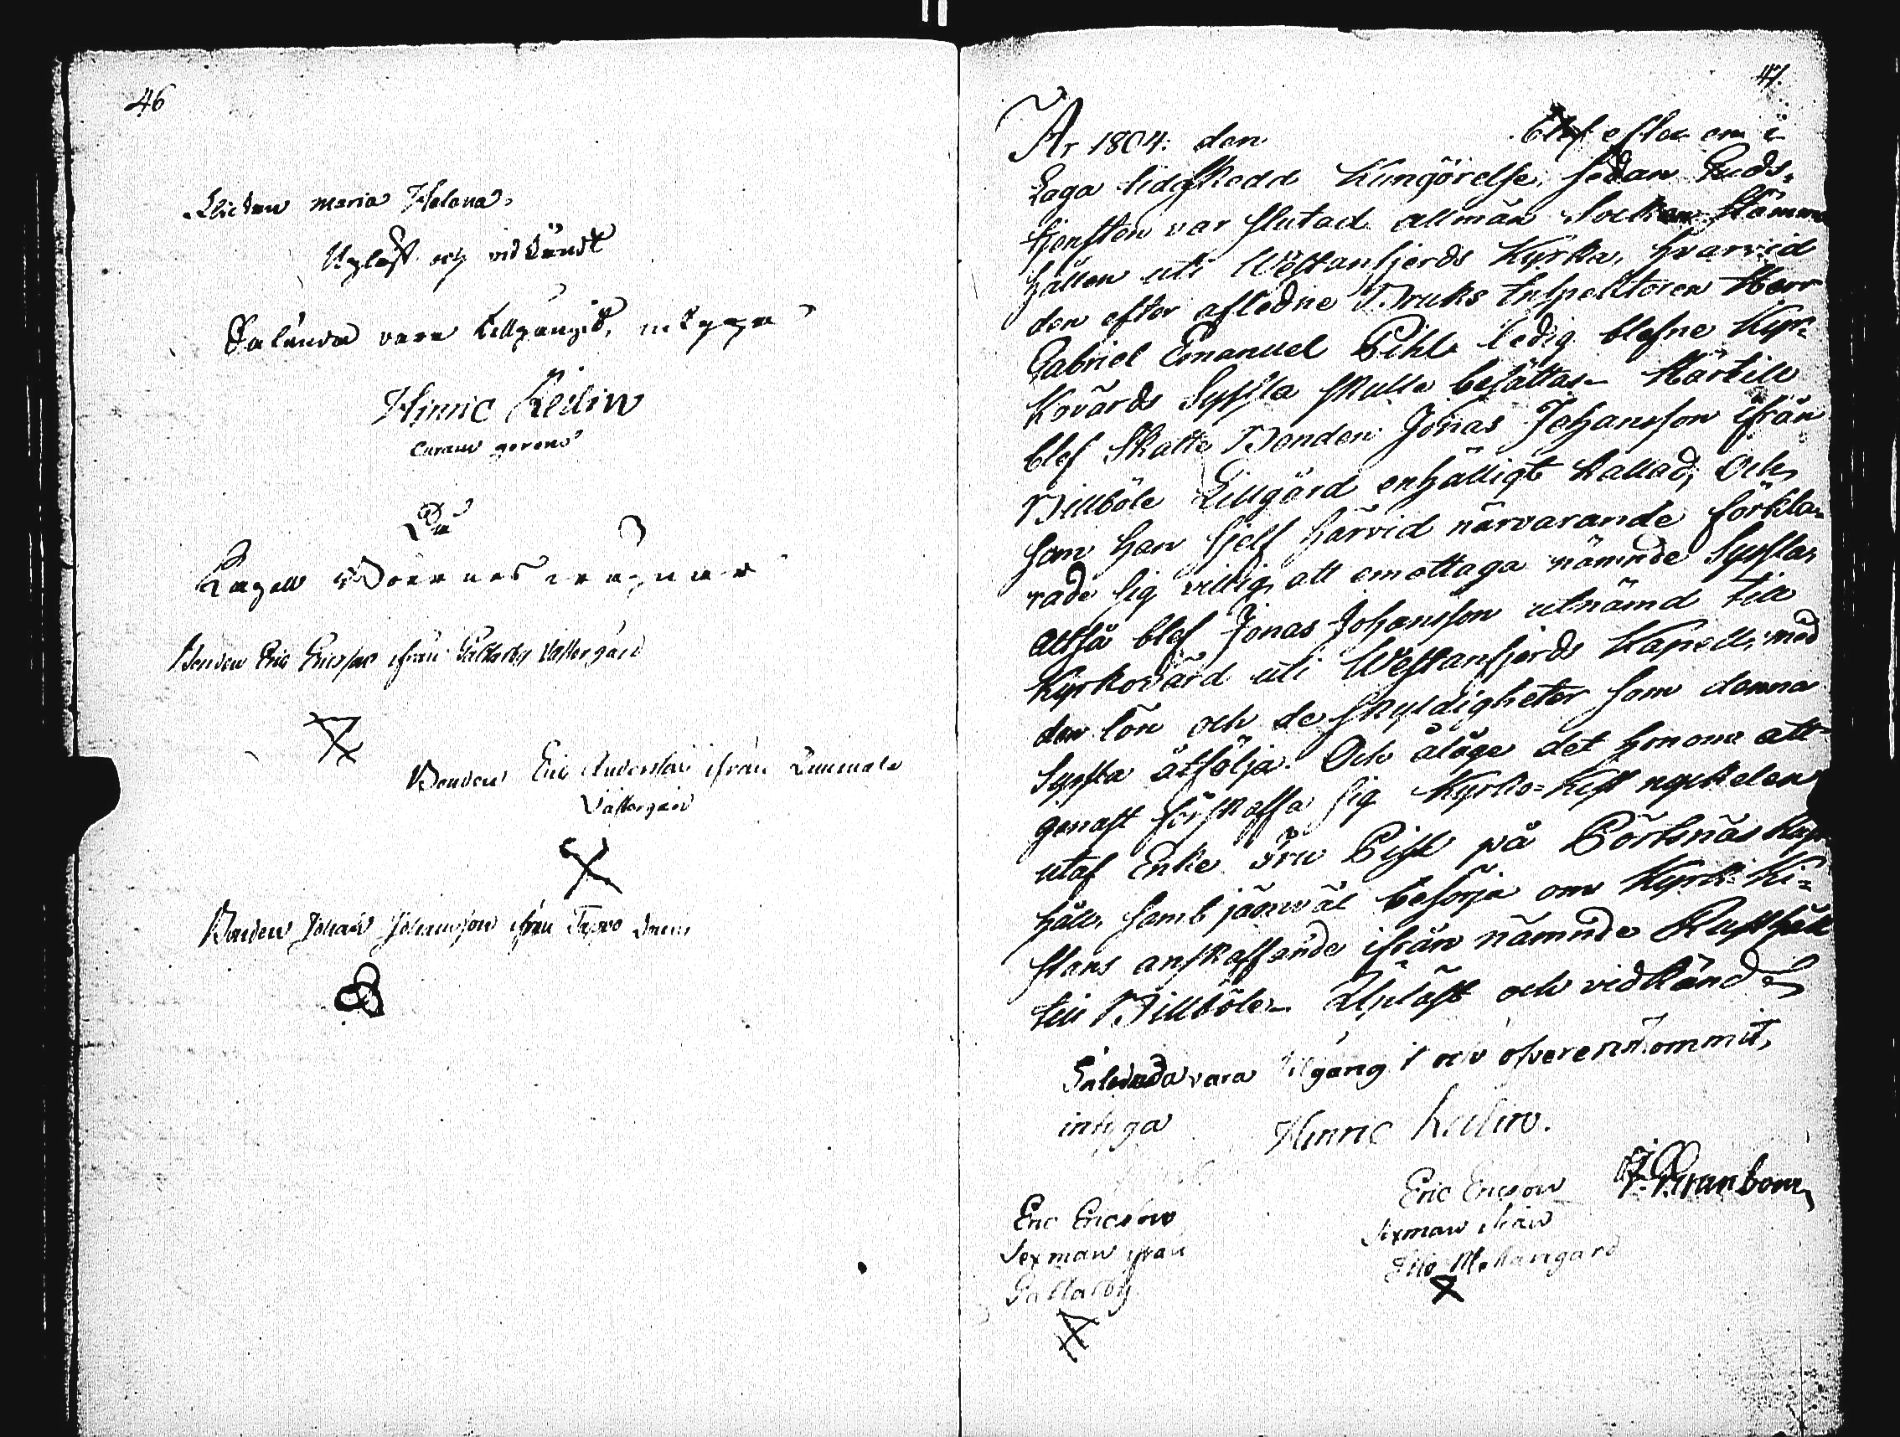 46
Flickan maria Helena,
Upläst och vidkändt
Sålunda vara tillgångit, intyga
Hinric Keilin
curam gerens
På
Kapell Boernes wägnar
Bonden Eric Ericsson ifrån Galtarby Västergård
Bonden Eric Andersson ifrån Lammala
Västergård
Bonden Johan Johansson ifrån Tappo
47.
År 1804: den blef efter en i
Laga tid skedd Kungörelse, sedan Guds-
tjensten var slutad allmän Socken Stämma
hållen uti Westanfjerds Kyrka, hvarvid
den efter afledne Bruks Inspektoren Herr
Gabriel Emanuel Pihl ledig blefne Kyr-
kovärds Syssla skulle besättas. Härtill
blef Skatte Bonden Jonas Johansson ifrån
Billböle Lillgård enhälligt kallad, Och
som han sjelf härvid närvarande förkla-
rade sig villig att emottaga nämnde Syssla,
altså blef Jonas Johansson utnämd till
Kyrkovärd uti Westanfjerds Kapell, med
den lön och de skyldigheter som denna
Syssla åtfölja. Och ålåge det honom att
genast förskaffa sig Kyrko-Kist nyckelen
utaf Enke Fru Pihl på Pörtsnäs Rust
håll, samt jämwäl besörja om Kyrk-Ki-
stans anskaffande ifrån nämnde Rusthåll
till Billböle. Upläst och vidkändes
Sålunda vara tilgångit och öfverenskommit,
intyga Hinric Keilin.
J: Granbom,
Eric Ericsson
Sexman ifrån
Galtarby
Eric Ericson
Sexman ifrån
Mellangård